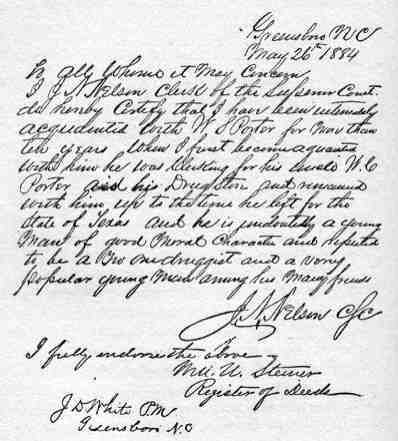 Greensboro N C
May 26th 1884
To All Whome it May Concern
I J N Nelson Clerk of the Superior Court
do hereby Certify that I have been intimately
acquainted With W S Porter for More than
ten years When I first became aquainted
with him he was Clerking for his uncle W. C
Porter and his Drug Store and remained
with him up to the time he left for the
State of Texas and he is undoubtedly a young
Man of good Moral Character and reputed
to be a No one druggist and a very
popular young Man among his Many friends
J. N. Nelson CSC
I fully endorse the above
W. U. Steiner
Register of Deeds
J D White P.M
Greensboro N.C